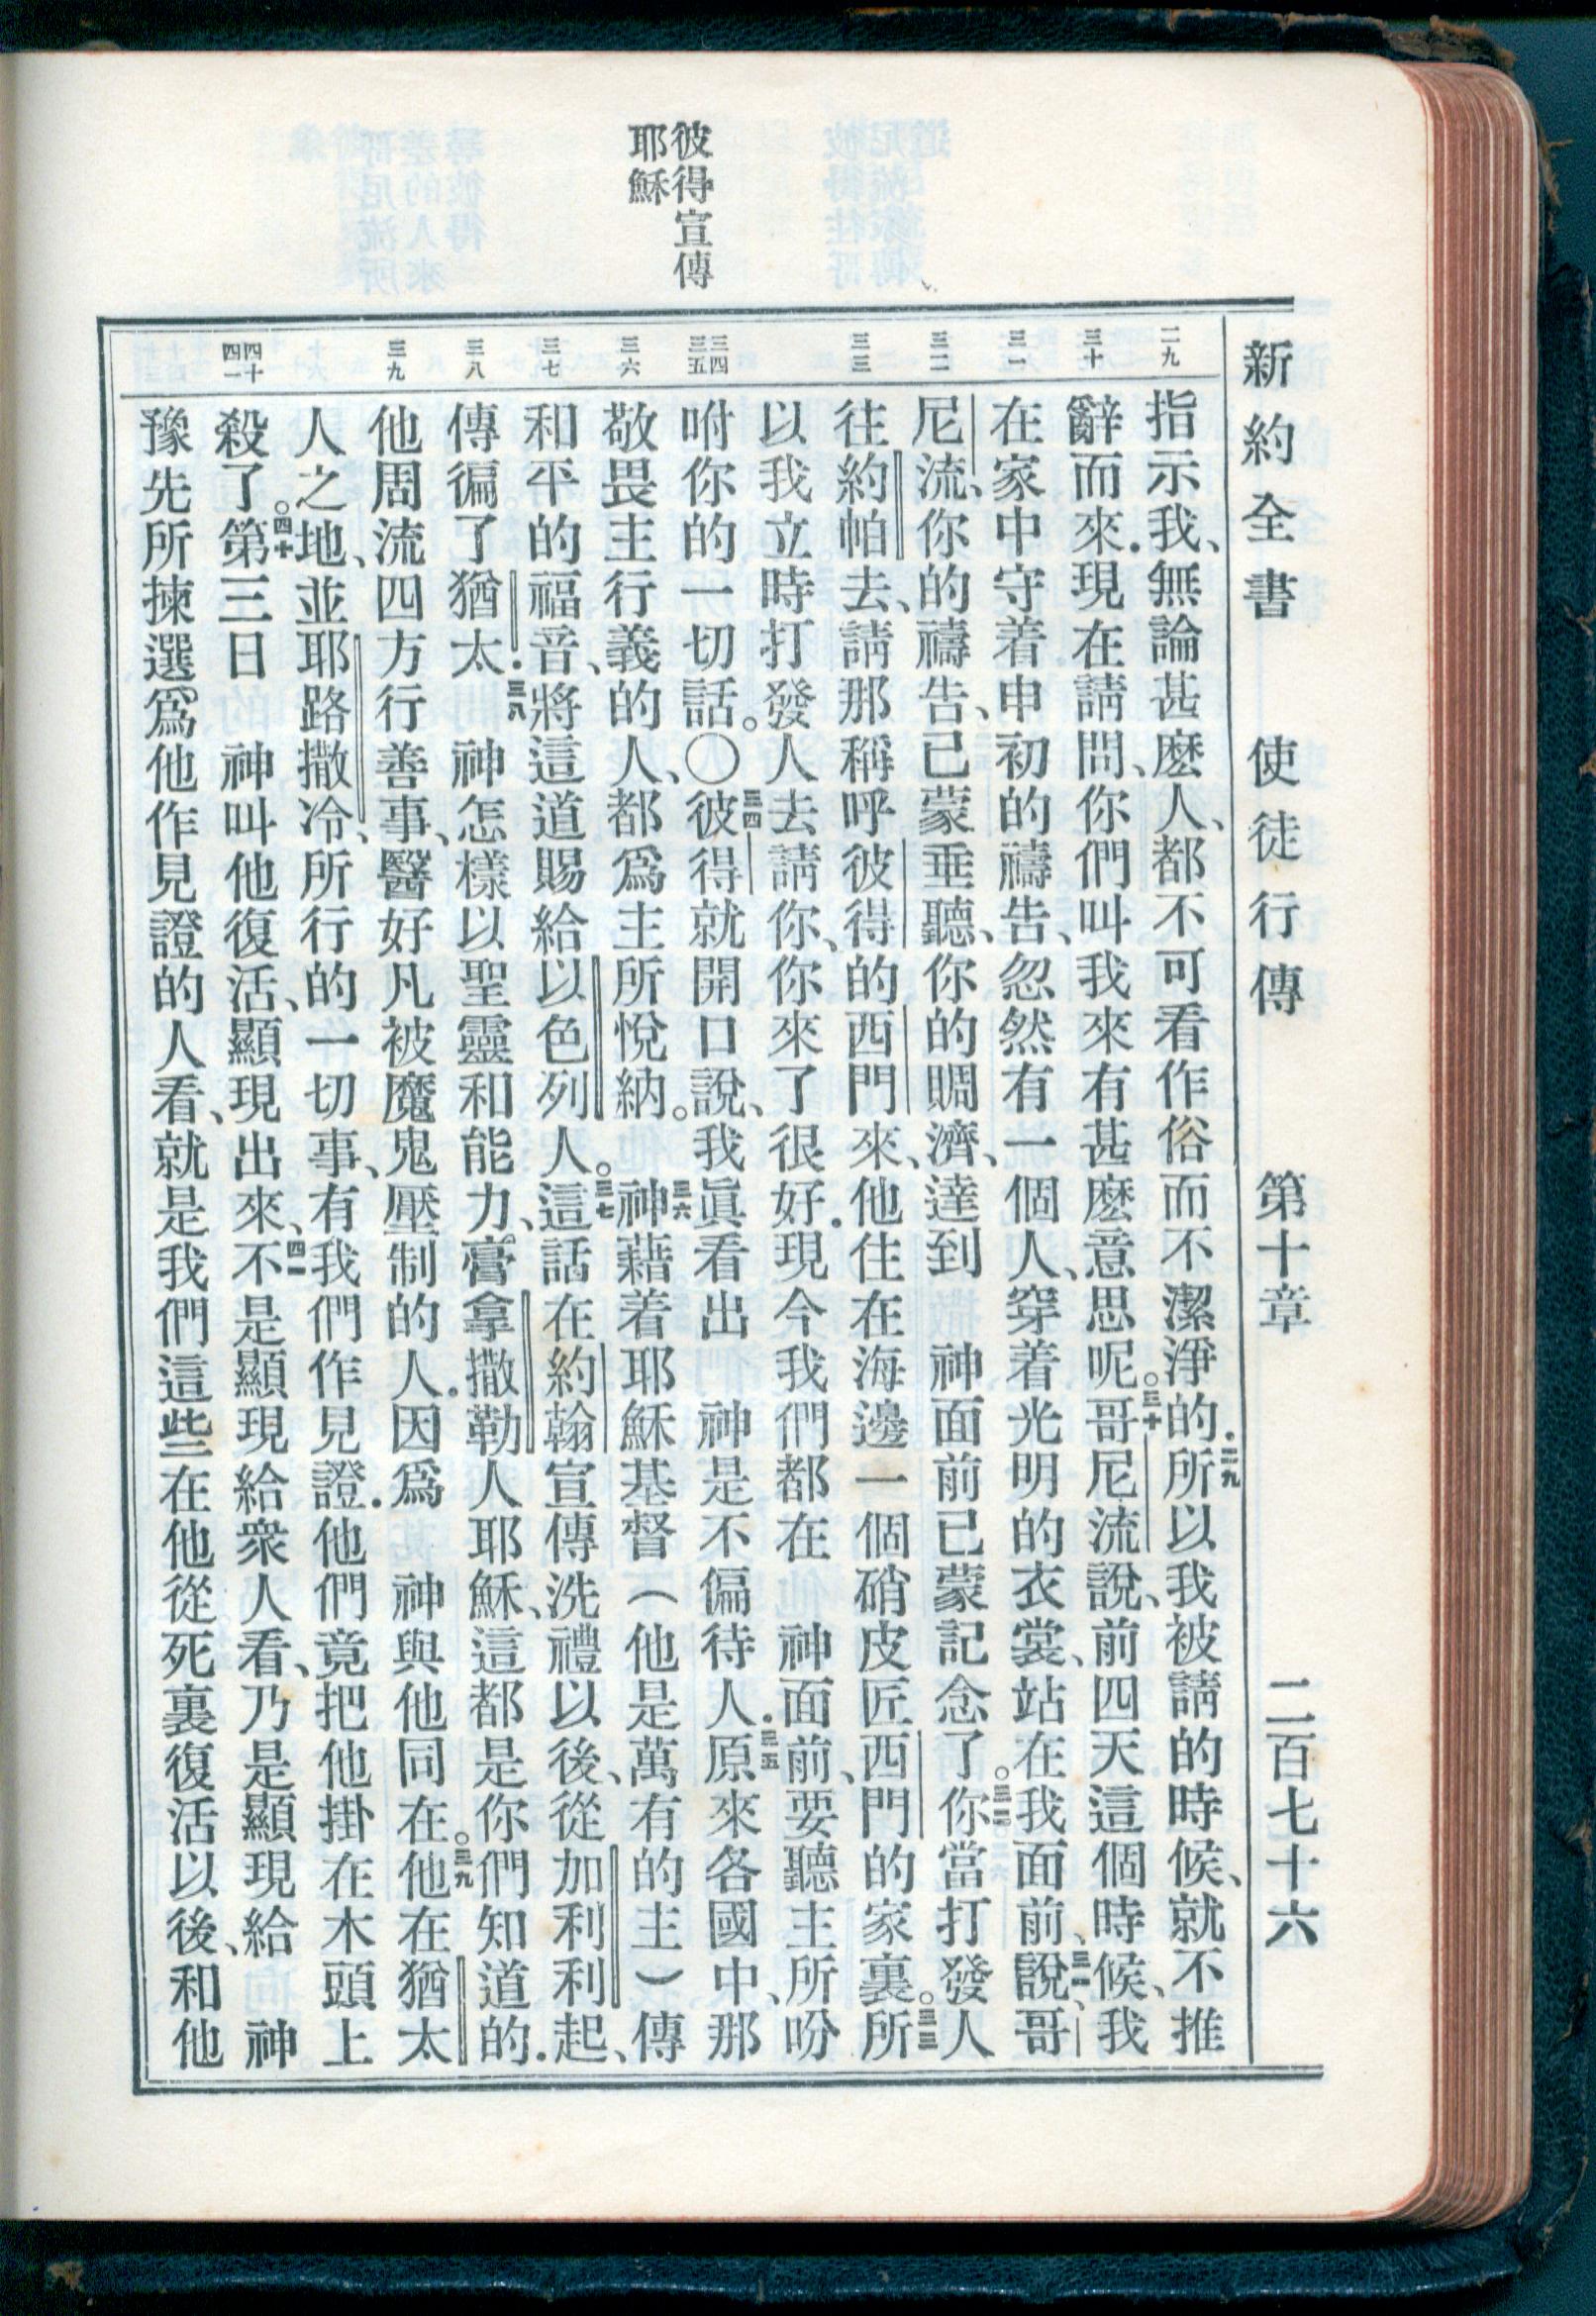 新約全書 使徒行傳 第十章 二百七十六
彼得宣傳
耶穌
二九
三十
三一
三二
三三
三四
三五
三六
三七
三八
三九
四十
四一
指示我、無論甚麽人、都不可看作俗而不潔淨的.二九所以我被請的時候、就不推
辭而來.現在請問、你們叫我來有甚麽意思呢。三十哥尼流說、前四天這個時候、我
在家中守着申初的禱告、忽然有一個人、穿着光明的衣裳、站在我面前、三一說、哥
尼流、你的禱告、已蒙垂聽、你的賙濟、達到 神面前已蒙記念了。三二你當打發人
往約帕去、請那稱呼彼得的西門來、他住在海邊一個硝皮匠西門的家裏。三三所
以我立時打發人去請你、你來了很好.現今我們都在 神面前、要聽主所吩
咐你的一切話。〇三四彼得就開口說、我眞看出 神是不偏待人.三五原來各國中、那
敬畏主行義的人、都爲主所悅納。三六神藉着耶穌基督（他是萬有的主）傳
和平的福音、將這道賜給以色列人。三七這話在約翰宣傳洗禮以後、從加利利起、
傳徧了猶太.三八 神怎樣以聖靈和能力、膏拿撒勒人耶穌、這都是你們知道的.
他周流四方行善事、醫好凡被魔鬼壓制的人.因爲 神與他同在。三九他在猶太
人之地、並耶路撒冷、所行的一切事、有我們作見證.他們竟把他掛在木頭上
殺了。四十第三日 神叫他復活、顯現出來、四一不是顯現給衆人看、乃是顯現給 神
豫先所揀選爲他作見證的人看、就是我們這些在他從死裏復活以後、和他